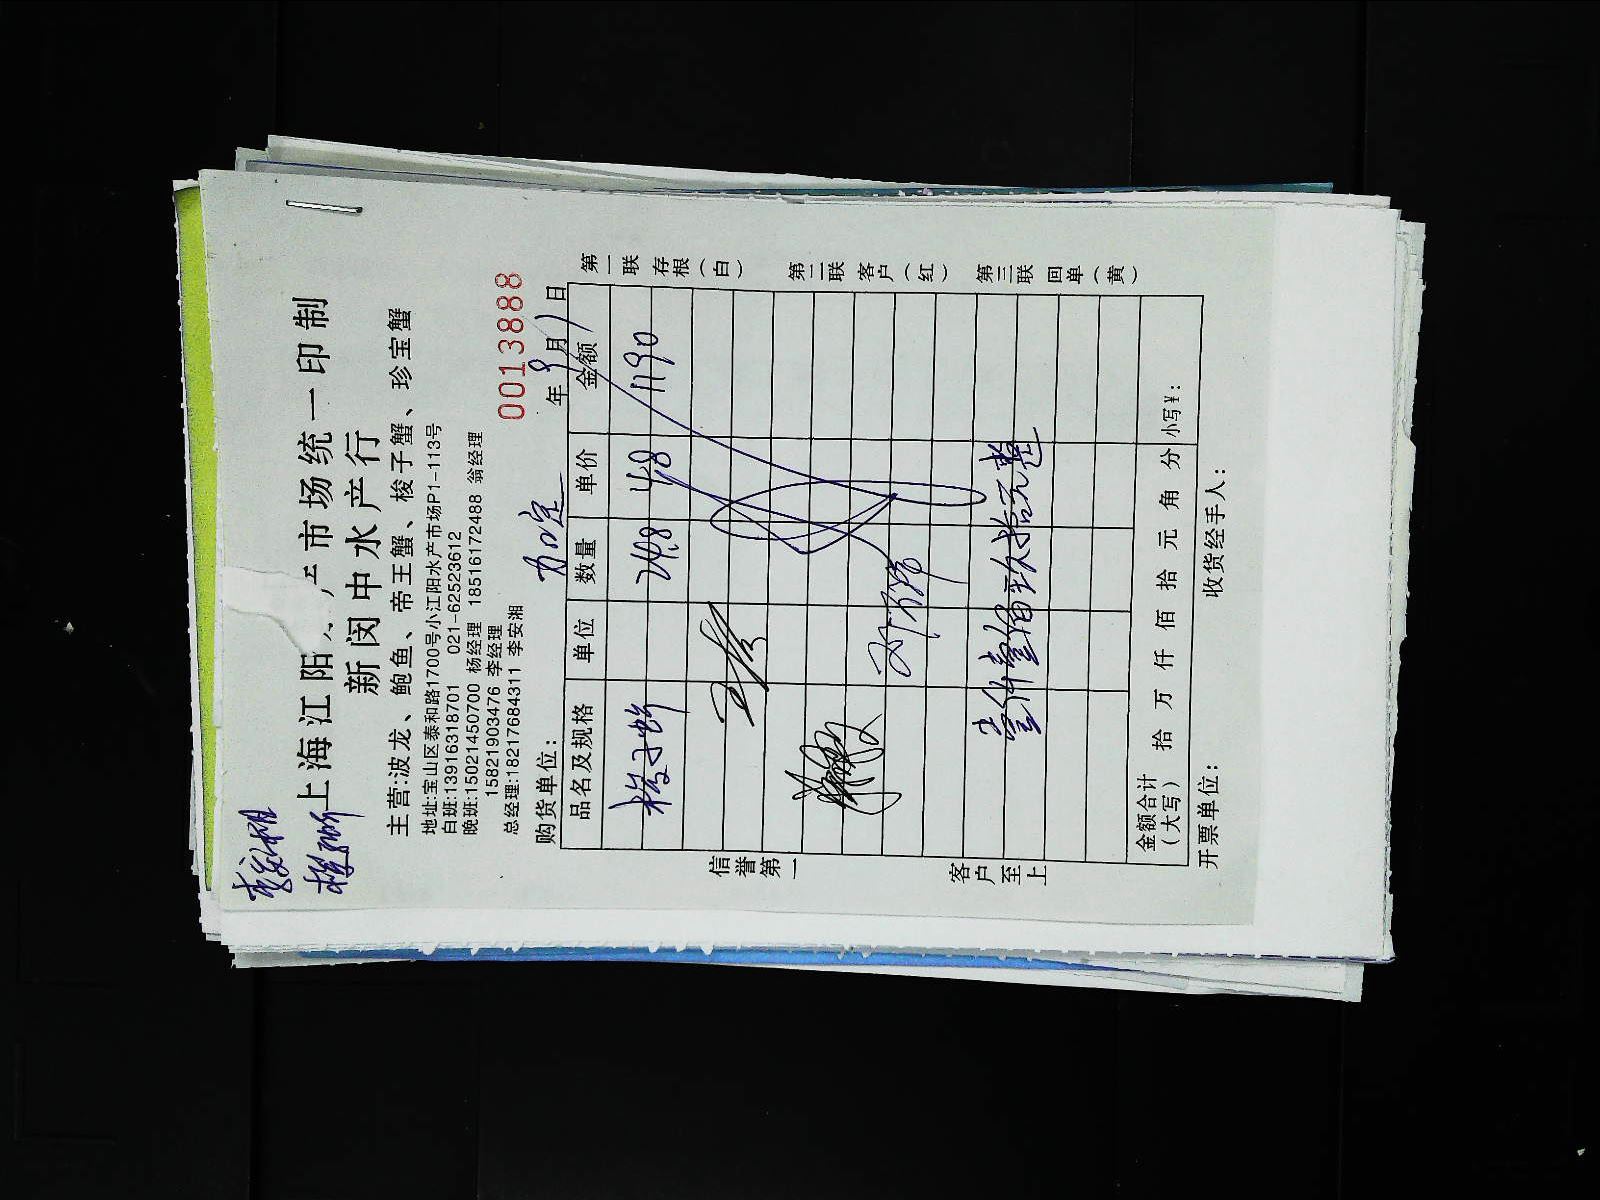 李安湘
上海江阳水产市场统一印制
新闵中水产行
主营:波龙、鲍鱼、帝王蟹、梭子蟹、珍宝蟹
地址:宝山区泰和路1700号小江阳水产市场P1-113号
白班:13916318701 021-62523612
晚班:15021450700 杨经理 18516172488 翁经理
15821903476 李经理
总经理:18217684311 李安湘
0013888
购货单位:
年 9月1日
品名及规格 单位 数量 单价 金额
梭子蟹 24.8 48 1190
壹仟壹佰玖拾元整
金额合计(大写) 拾 万 仟 佰 拾 元 角 分 小写¥:
开票单位: 收货经手人:
信誉第一
客户至上
第一联存根(白)
第二联客户(红)
第三联回单(黄)